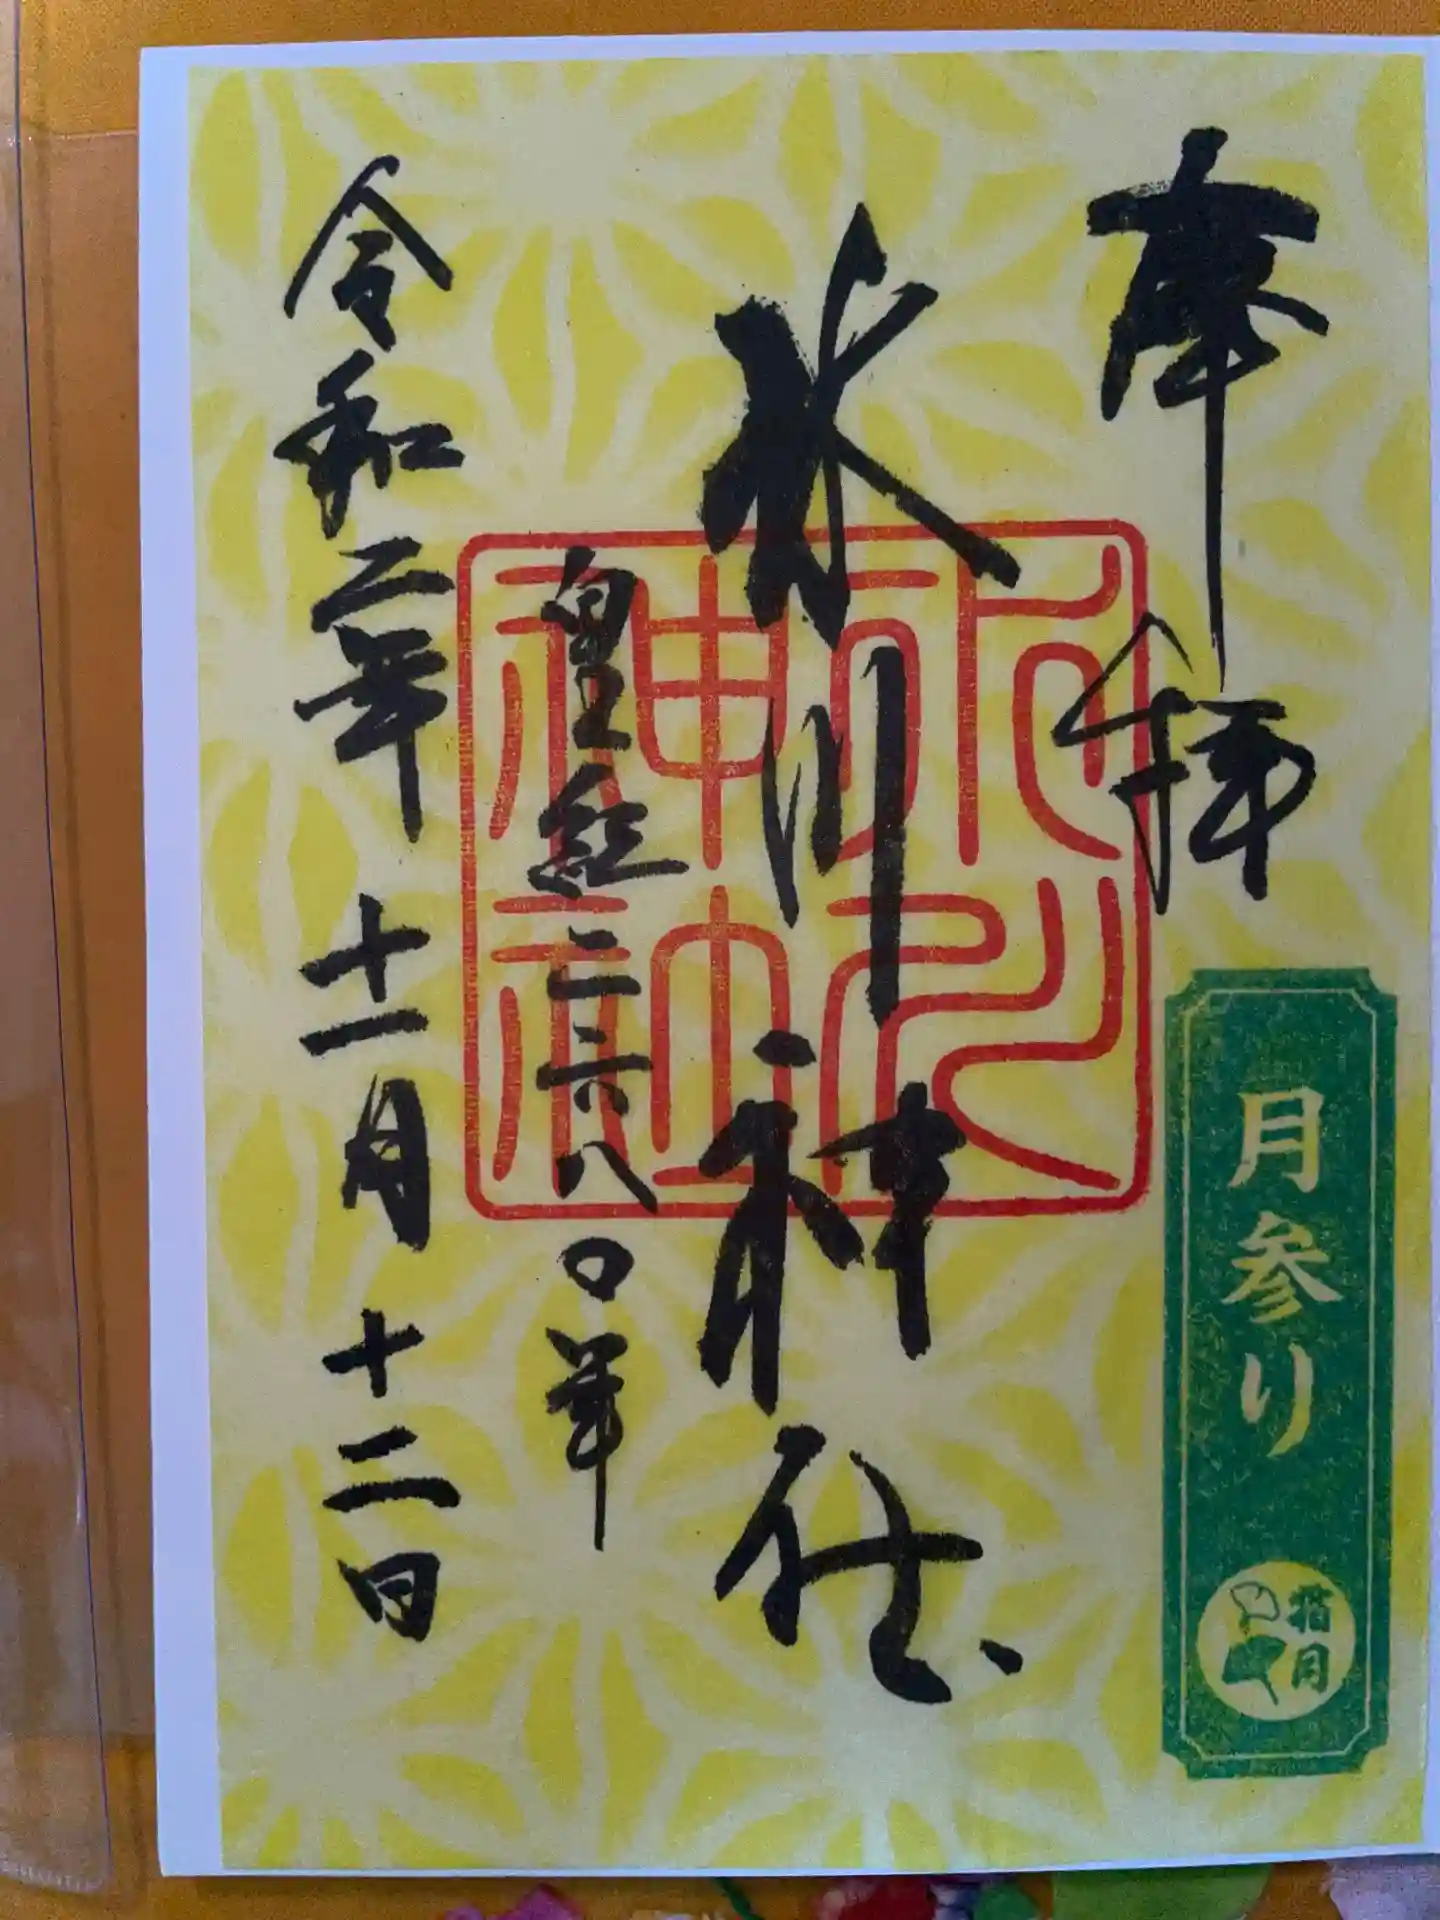 奉拝
氷川神社
皇紀二六八〇年
令和二年十一月十二日
氷川
神社
月参り